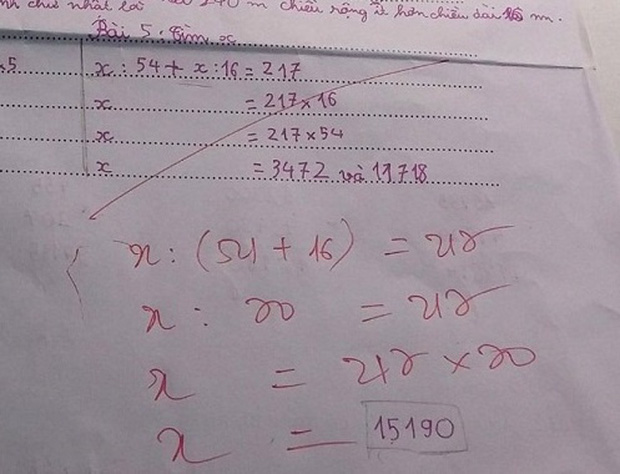 chữ nhật là 240 m chiều rộng ít hơn chiều dài 16 m.
Bài 5: Tìm x
x5
x : 54 + x : 16 = 217
x = 217 x 16
x = 217 x 54
x = 3472 và 11718
x : (54 + 16) = 217
x : 70 = 217
x = 217 x 70
x = 15190